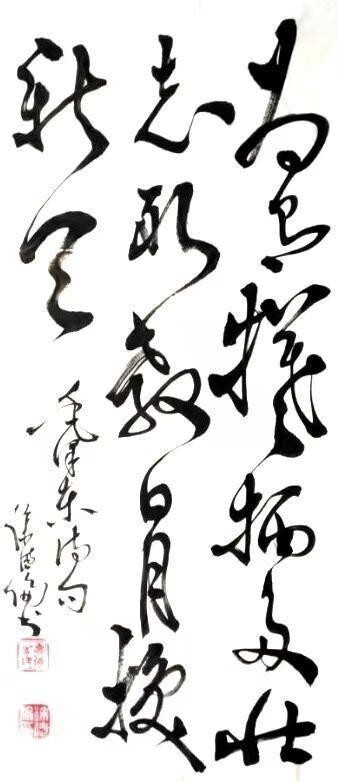 为有犧牲多壮
志敢教日月换
新天
毛泽东诗句
书